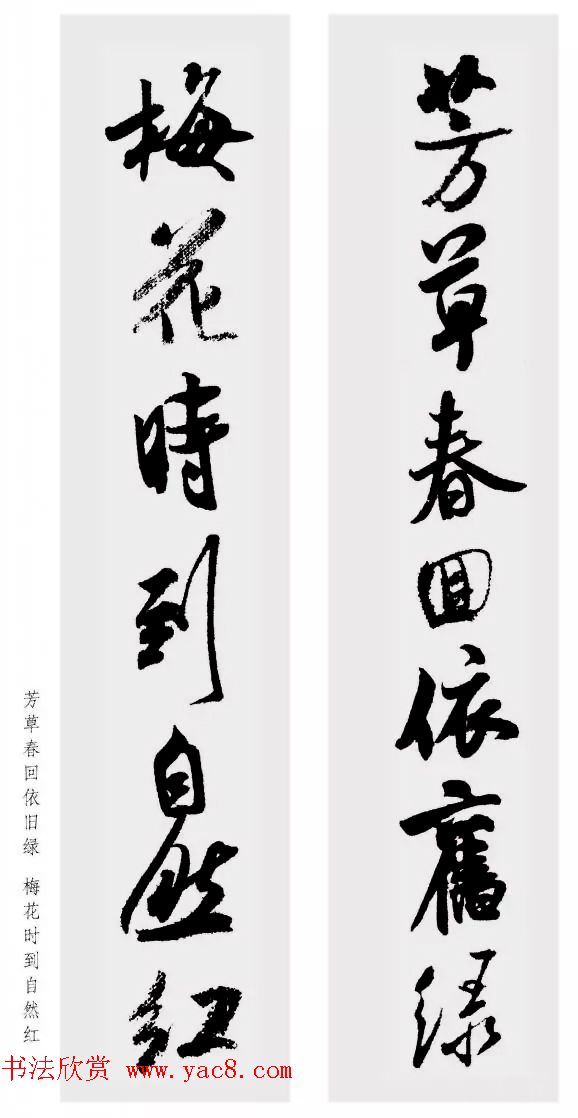 芳草春回依舊緑
梅花時到自然紅
芳草春回依旧绿 梅花时到自然红
书法欣赏 www.yac8.com